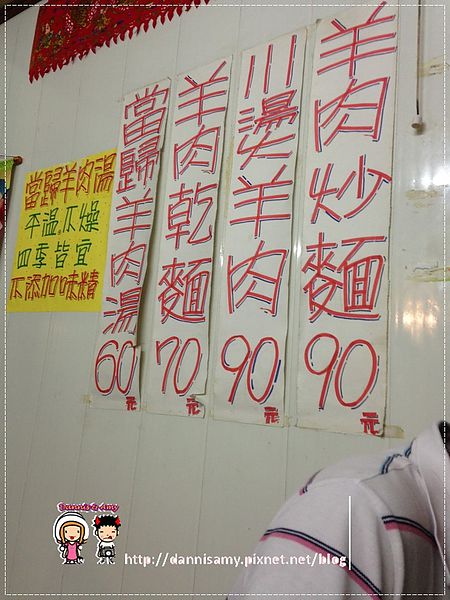 羊肉炒麵90元
川燙羊肉90元
羊肉乾麵70元
當歸羊肉湯60元
當歸羊肉湯
平溫不燥
四季皆宜
不添加味精
Dannis & Amy
http://dannisamy.pixnet.net/blog